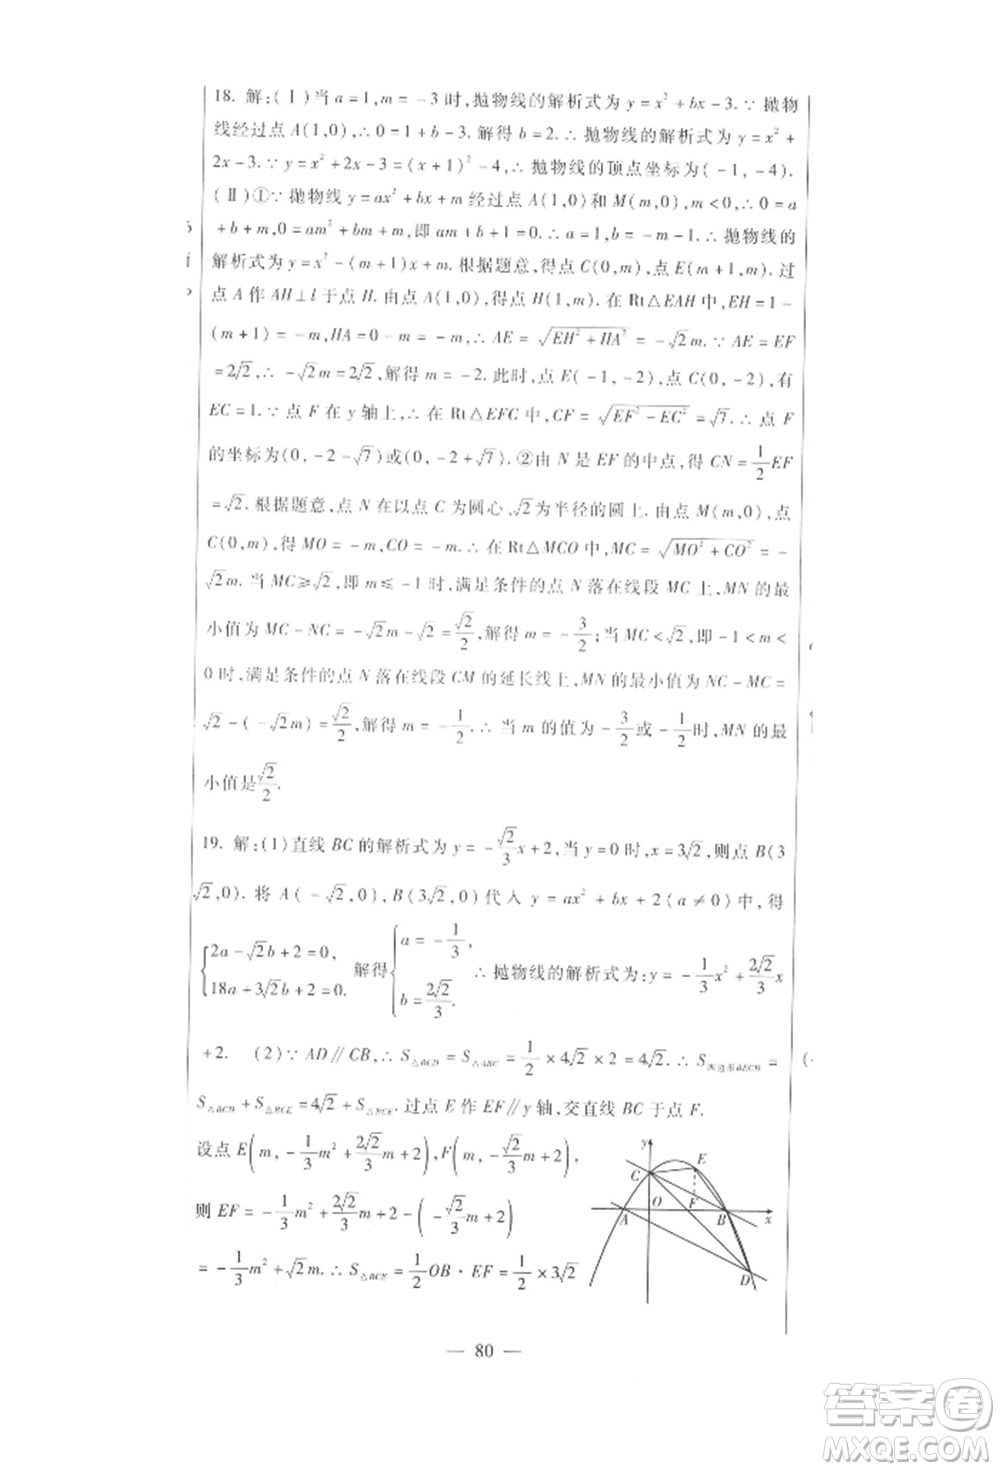 18. 解:(Ⅰ)当 a=1,m=-3 时,抛物线的解析式为 y=x²+bx-3.∵抛物
线经过点 A(1,0),∴0=1+b-3.解得 b=2.∴抛物线的解析式为 y=x²+
2x-3.∵y=x²+2x-3=(x+1)²-4,∴抛物线的顶点坐标为(-1,-4).
(Ⅱ)①∵抛物线 y=ax²+bx+m 经过点 A(1,0)和 M(m,0),m<0,∴0=a
+b+m,0=am²+bm+m,即 am+b+1=0.∴a=1,b=-m-1.∴抛物线的
解析式为 y=x²-(m+1)x+m.根据题意,得点 C(0,m),点 E(m+1,m).过
点 A 作 AH⊥l 于点 H.由点 A(1,0),得点 H(1,m).在 Rt△EAH 中,EH=1-
(m+1)=-m,HA=0-m=-m,∴AE=√(EH²+HA²)=-√2m.∵AE=EF
=2√2,∴-√2m=2√2,解得 m=-2.此时,点 E(-1,-2),点 C(0,-2),有
EC=1.∵点 F 在 y 轴上,∴在 Rt△EFC 中,CF=√(EF²-EC²)=√7.∴点 F
的坐标为(0,-2-√7)或(0,-2+√7).②由 N 是 EF 的中点,得 CN=1/2EF
=√2.根据题意,点 N 在以点 C 为圆心、√2为半径的圆上.由点 M(m,0),点
C(0,m),得 MO=-m,CO=-m,∴在 Rt△MCO 中,MC=√(MO²+CO²)=-
√2m.当 MC≥√2,即 m≤-1 时,满足条件的点 N 落在线段 MC 上,MN 的最
小值为 MC-NC=-√2m-√2=√2/2,解得 m=-3/2;当 MC<√2,即-1<m<
0 时,满足条件的点 N 落在线段 CM 的延长线上,MN 的最小值为 NC-MC=
√2-(-√2m)=√2/2,解得 m=-1/2.∴当 m 的值为-3/2或-1/2时,MN 的最
小值是√2/2.
19. 解:(1)直线 BC 的解析式为 y=-√2/3x+2,当 y=0 时,x=3√2,则点 B(3
√2,0).将 A(-√2,0),B(3√2,0)代入 y=ax²+bx+2(a≠0)中,得
{2a-√2b+2=0, 18a+3√2b+2=0. 解得{a=-1/3, b=2√2/3. ∴抛物线的解析式为:y=-1/3x²+2√2/3x
+2. (2)∵AD∥CB,∴S△BCD=S△ABC=1/2×4√2×2=4√2.∴S四边形BECD=
S△BCD+S△BCE=4√2+S△BCE.过点 E 作 EF∥y 轴,交直线 BC 于点 F.
设点 E(m,-1/3m²+2√2/3m+2),F(m,-√2/3m+2),
则 EF=-1/3m²+2√2/3m+2-(-√2/3m+2)
=-1/3m²+√2m.∴S△BCE=1/2OB·EF=1/2×3√2
y
C
E
A
O
F
B
x
D
— 80 —
答案卷
MXQE.COM